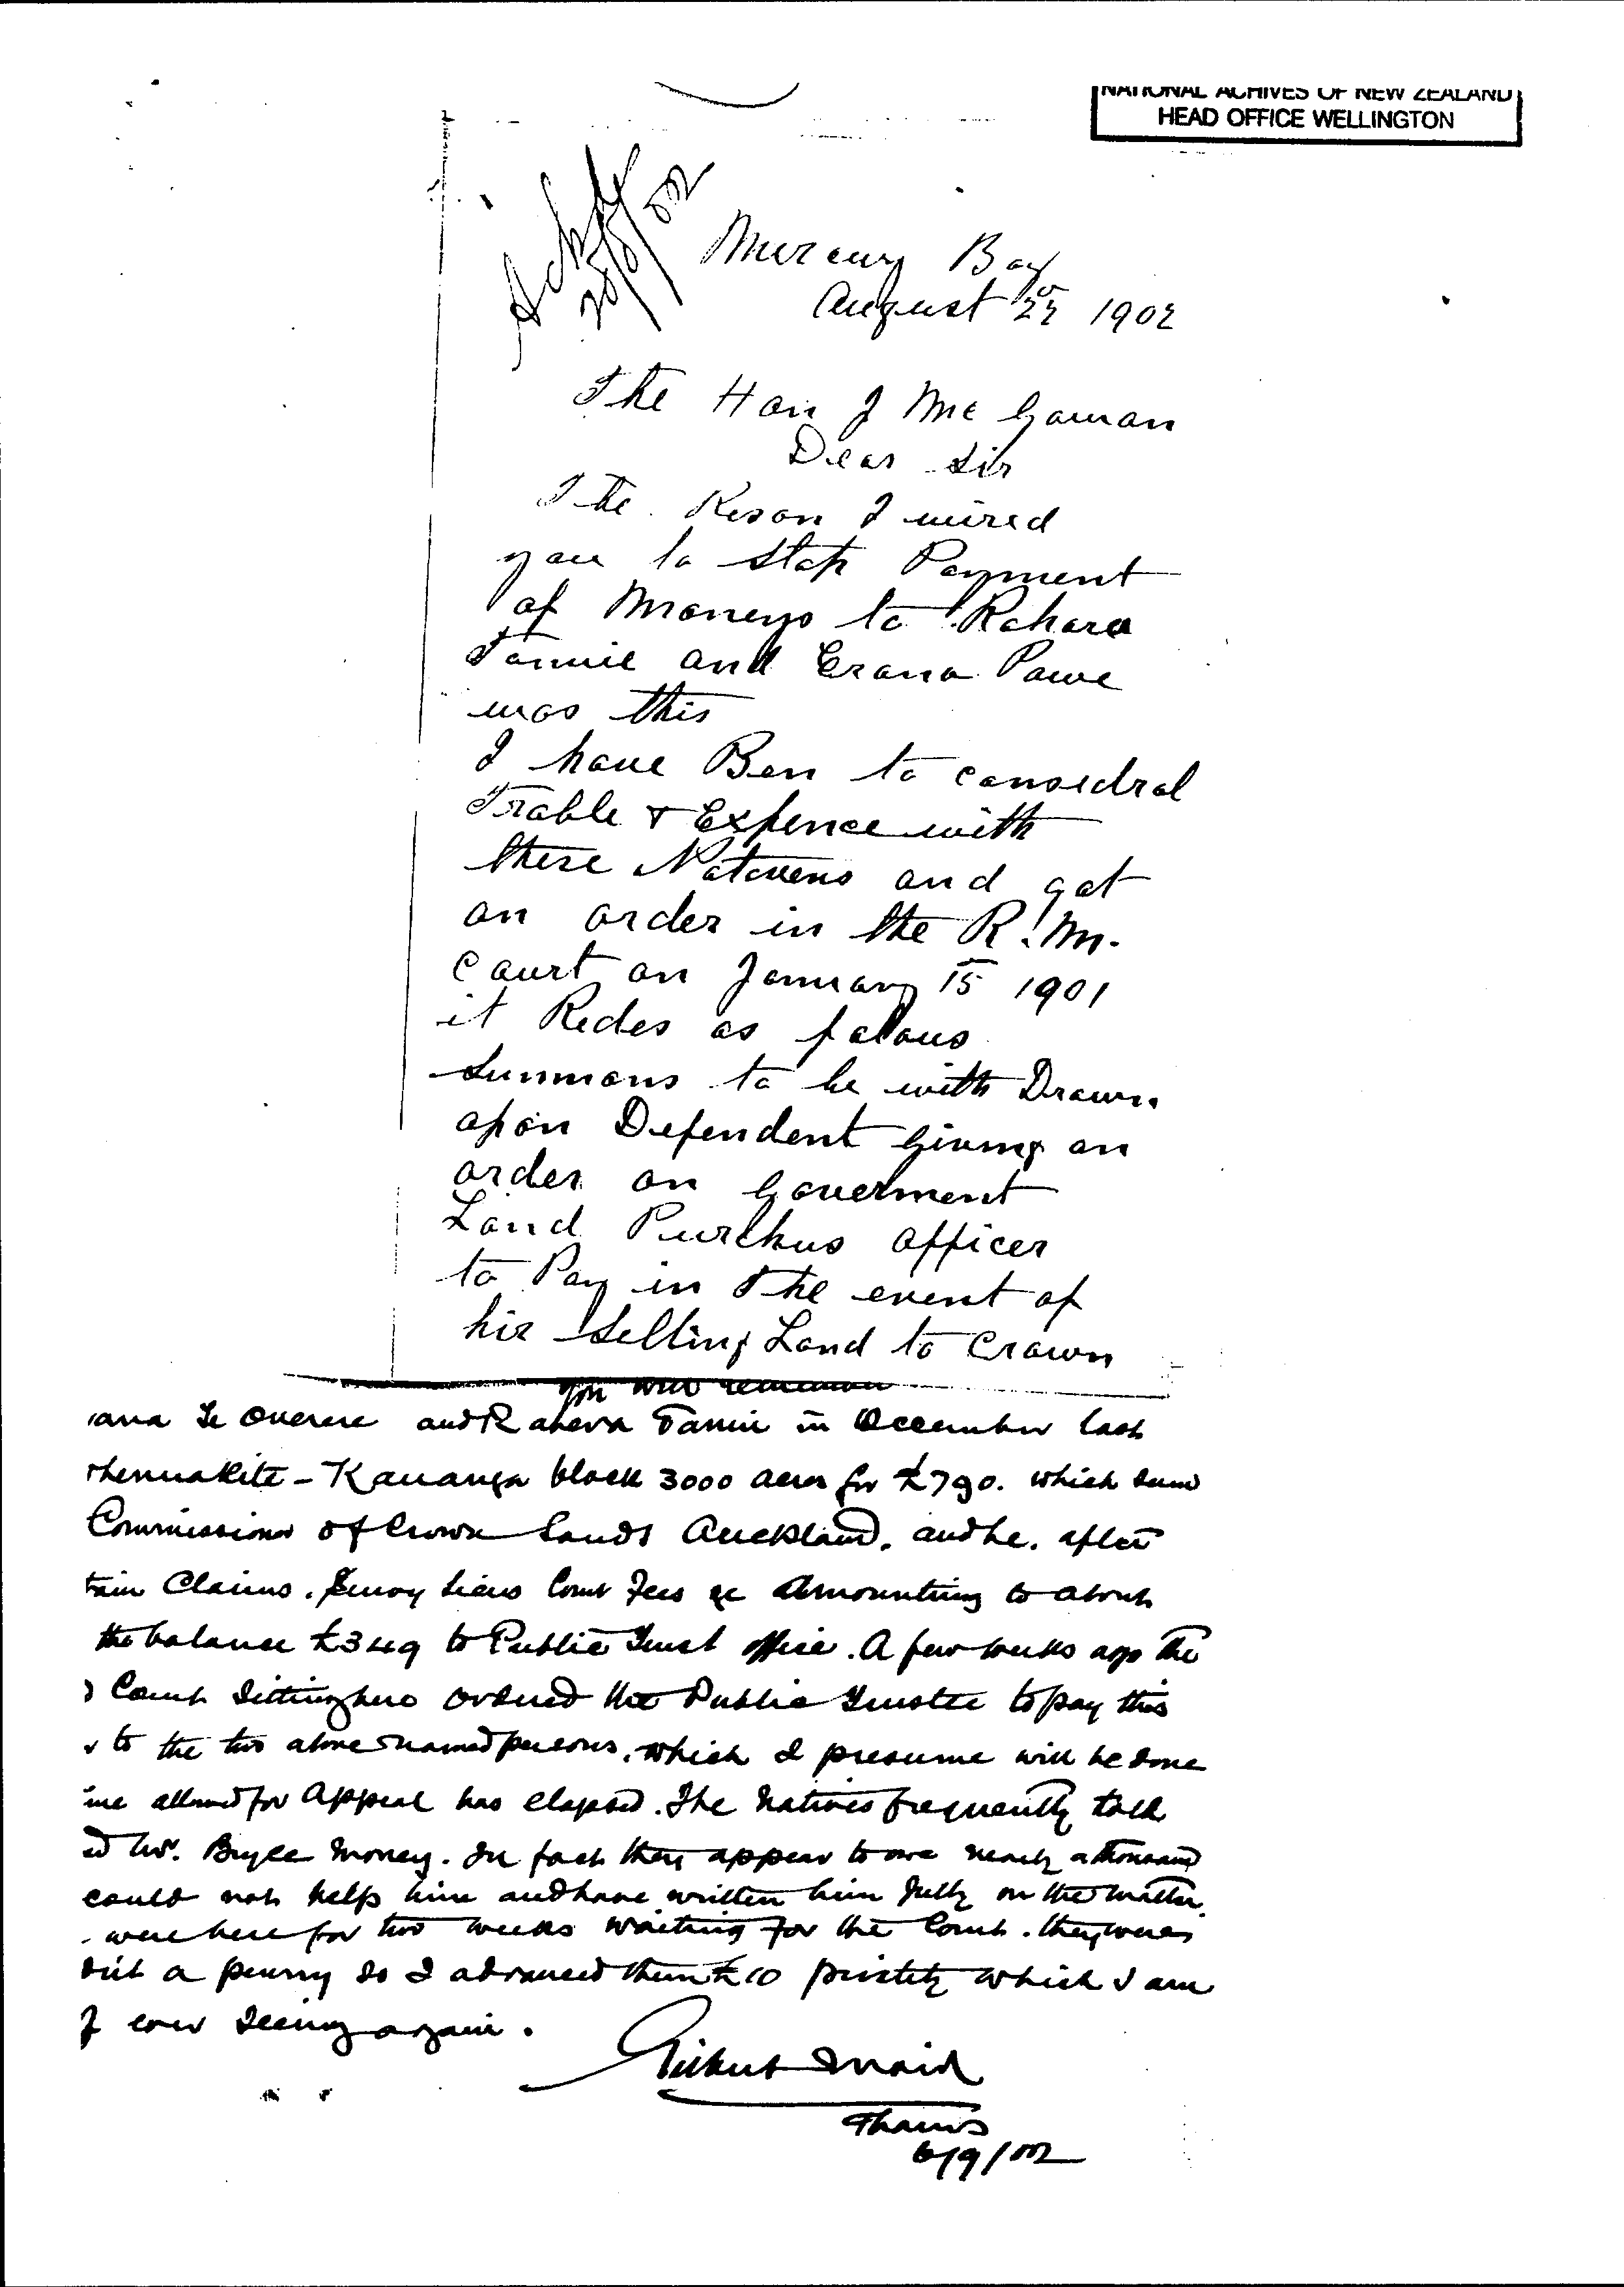 NATIONAL ACHIVES OF NEW ZEALAND
HEAD OFFICE WELLINGTON
Mercury Bay
August 22 1902
The Hon J Mc Gowan
Dear Sir
The Reson I wired
you to stop Payment
of Moneys to Rahera
Tannie and Erana Pawe
was this
I have Ben to consedral
Trable & Expence with
these Natavens and got
an order in the R. M.
Court on January 15 1901
it Redes as folous
Summons to be with Drawn
apon Defendent giving an
order on Goverment
Land Purchus officer
to Pay in The event of
his Selling Land to Crown
you will remember
ana Te and Rahera Tanui in December last
whenuakite - Kauanga block 3000 acres for £790. which sum
Commissioner of Crown Lands Auckland. and he. after
tain Claims. Survey liens Court Fees &c amounting to about
the balance £349 to Public Trust office. A few weeks ago the
Court Sitting here ordered the Public Trustee to pay this
to the two above named persons. which I presume will be done
ime allowed for Appeal has elapsed. The Natives frequently told
ed Mr. Bryce money. In fact they appear to owe nearly a thousand
could not help him and have written him fully on the matter.
were here for two weeks waiting for the Court. they were
out a penny so I advanced them £10 privately which I am
f ever seeing again.
Gilbert Mair
Thames
6/9/02